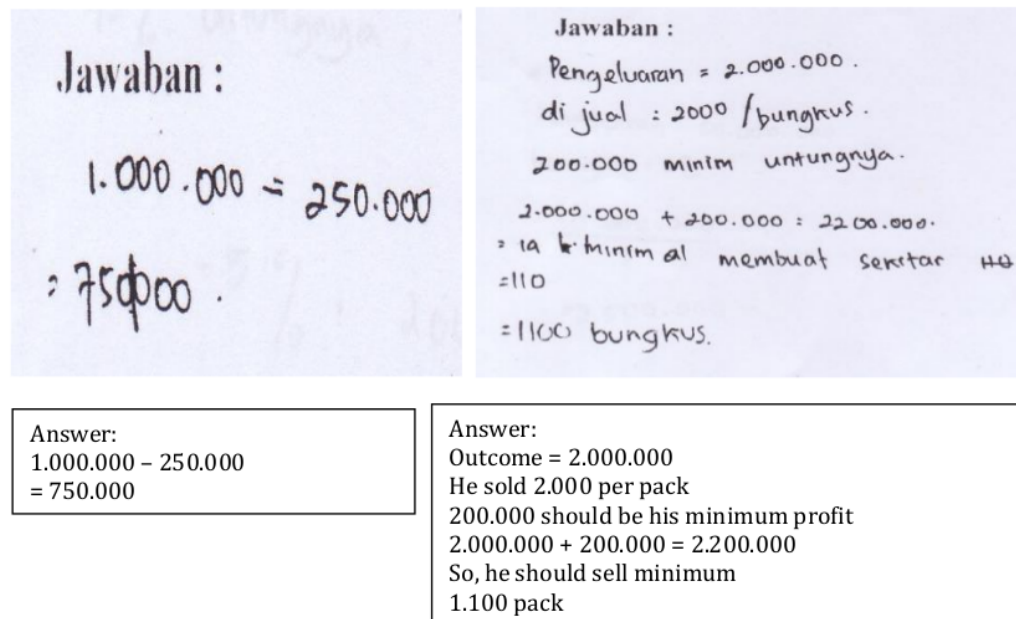 Jawaban :
1.000.000 = 250.000
= 750000 .
Jawaban :
Pengeluaran = 2.000.000 .
di jual : 2000 / bungkus .
200.000 minim untungnya .
2.000.000 + 200.000 : 2200.000 .
= ia minimal membuat sekitar
=110
=1100 bungkus.
Answer:
1.000.000 – 250.000
= 750.000
Answer:
Outcome = 2.000.000
He sold 2.000 per pack
200.000 should be his minimum profit
2.000.000 + 200.000 = 2.200.000
So, he should sell minimum
1.100 pack